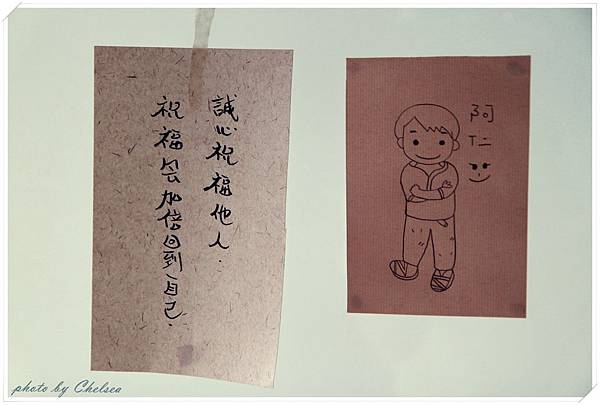 誠心祝福他人.
祝福会加倍回到自己.
阿仁
photo by Chelsea